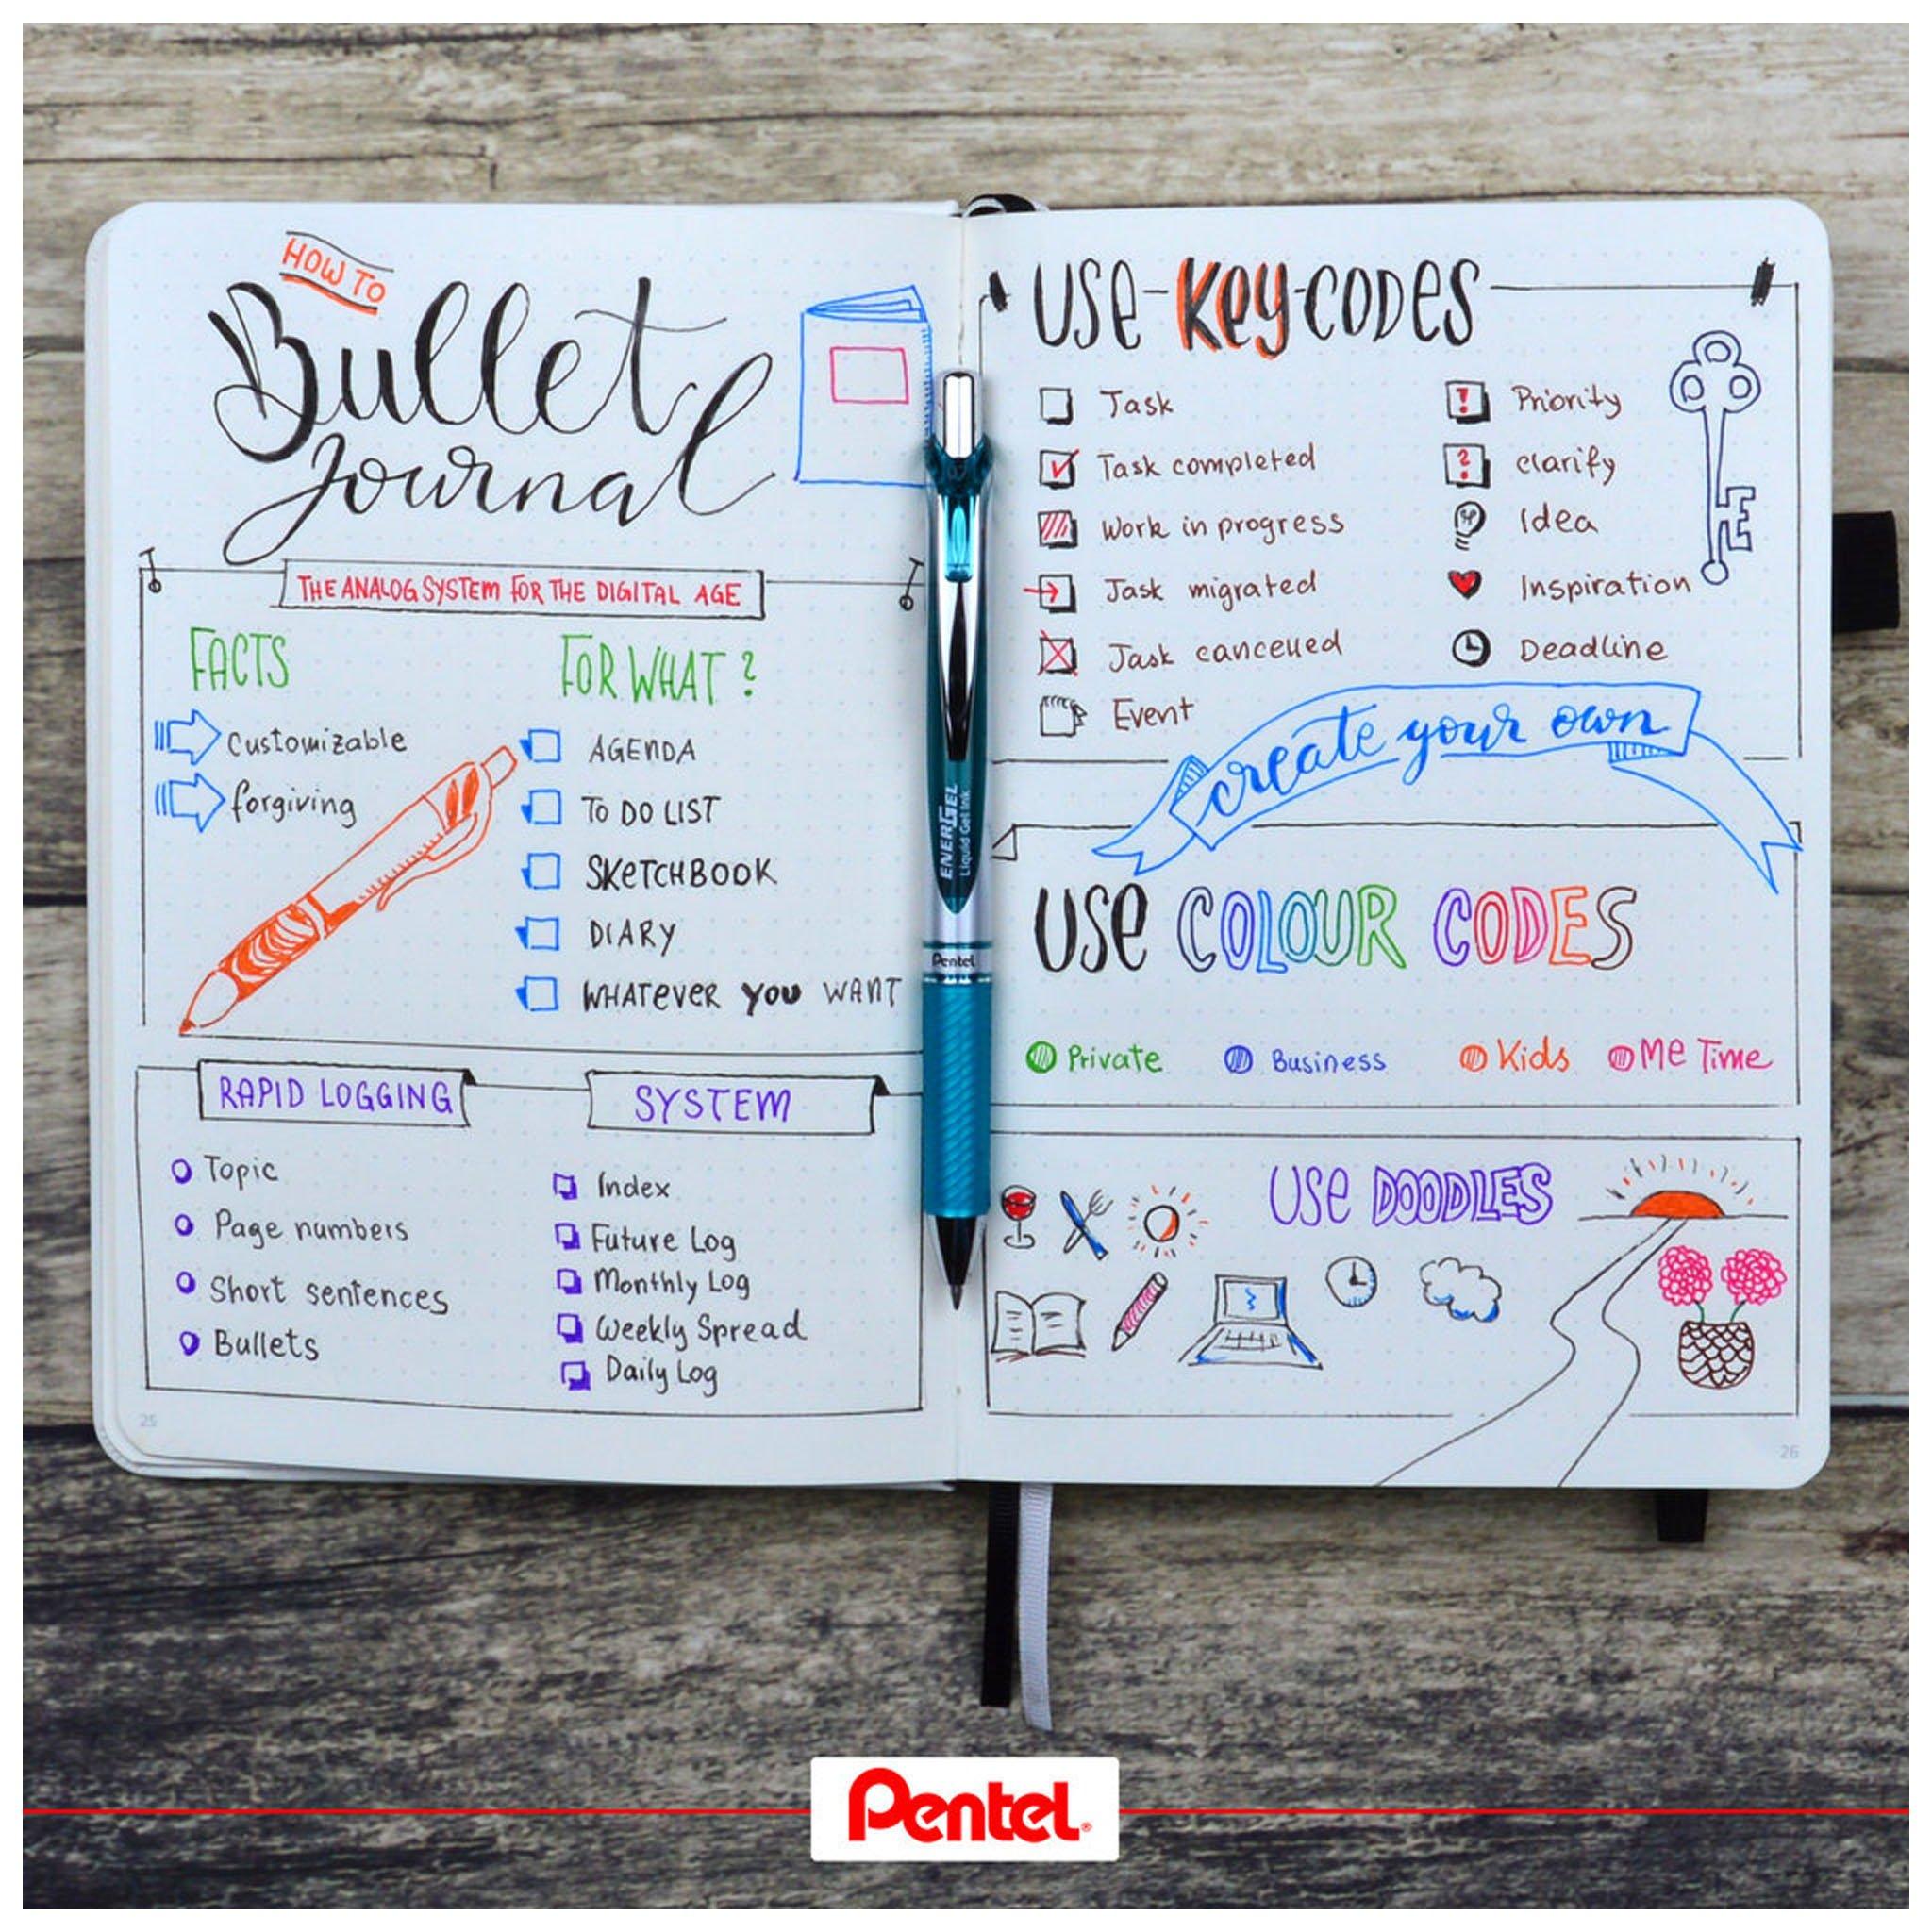 HOW TO
Bullet
Journal
THE ANALOG SYSTEM FOR THE DIGITAL AGE
FACTS
Customizable
forgiving
FOR WHAT?
AGENDA
TO DO LIST
SKETCHBOOK
DIARY
WHATEVER YOU WANT
RAPID LOGGING
Topic
Page numbers
Short sentences
Bullets
SYSTEM
Index
Future Log
Monthly Log
Weekly Spread
Daily Log
25
ENERGEL
Liquid Gel Ink
Pentel
USE-KEY-CODES
Task
Task completed
Work in progress
Task migrated
Task cancelled
Event
! Priority
? clarify
Idea
Inspiration
Deadline
create your own
USE COLOUR CODES
Private
Business
Kids
Me Time
USE DOODLES
26
Pentel®